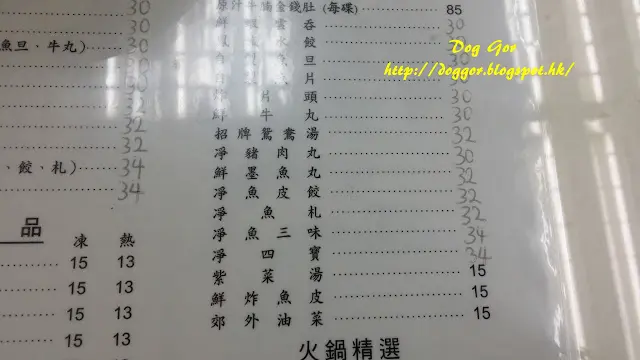 30
30
魚旦、牛丸) 30
30
30
32
32
32
、餃、札) 34
34
品
凍 熱
15 13
15 13
15 13
15 13
牛腩金錢肚(每碟) 85
鮮蝦雲吞 30
水餃 30
旦
片 30
頭 30
鮮牛丸 30
招牌鴛鴦湯 32
淨豬肉丸 30
鮮墨魚丸 32
淨魚皮餃 32
淨魚札 32
淨魚三味 34
淨四寶 34
紫菜湯 15
鮮炸魚皮 15
郊外油菜 15
火鍋精選
Dog Gor
http://doggor.blogspot.hk/